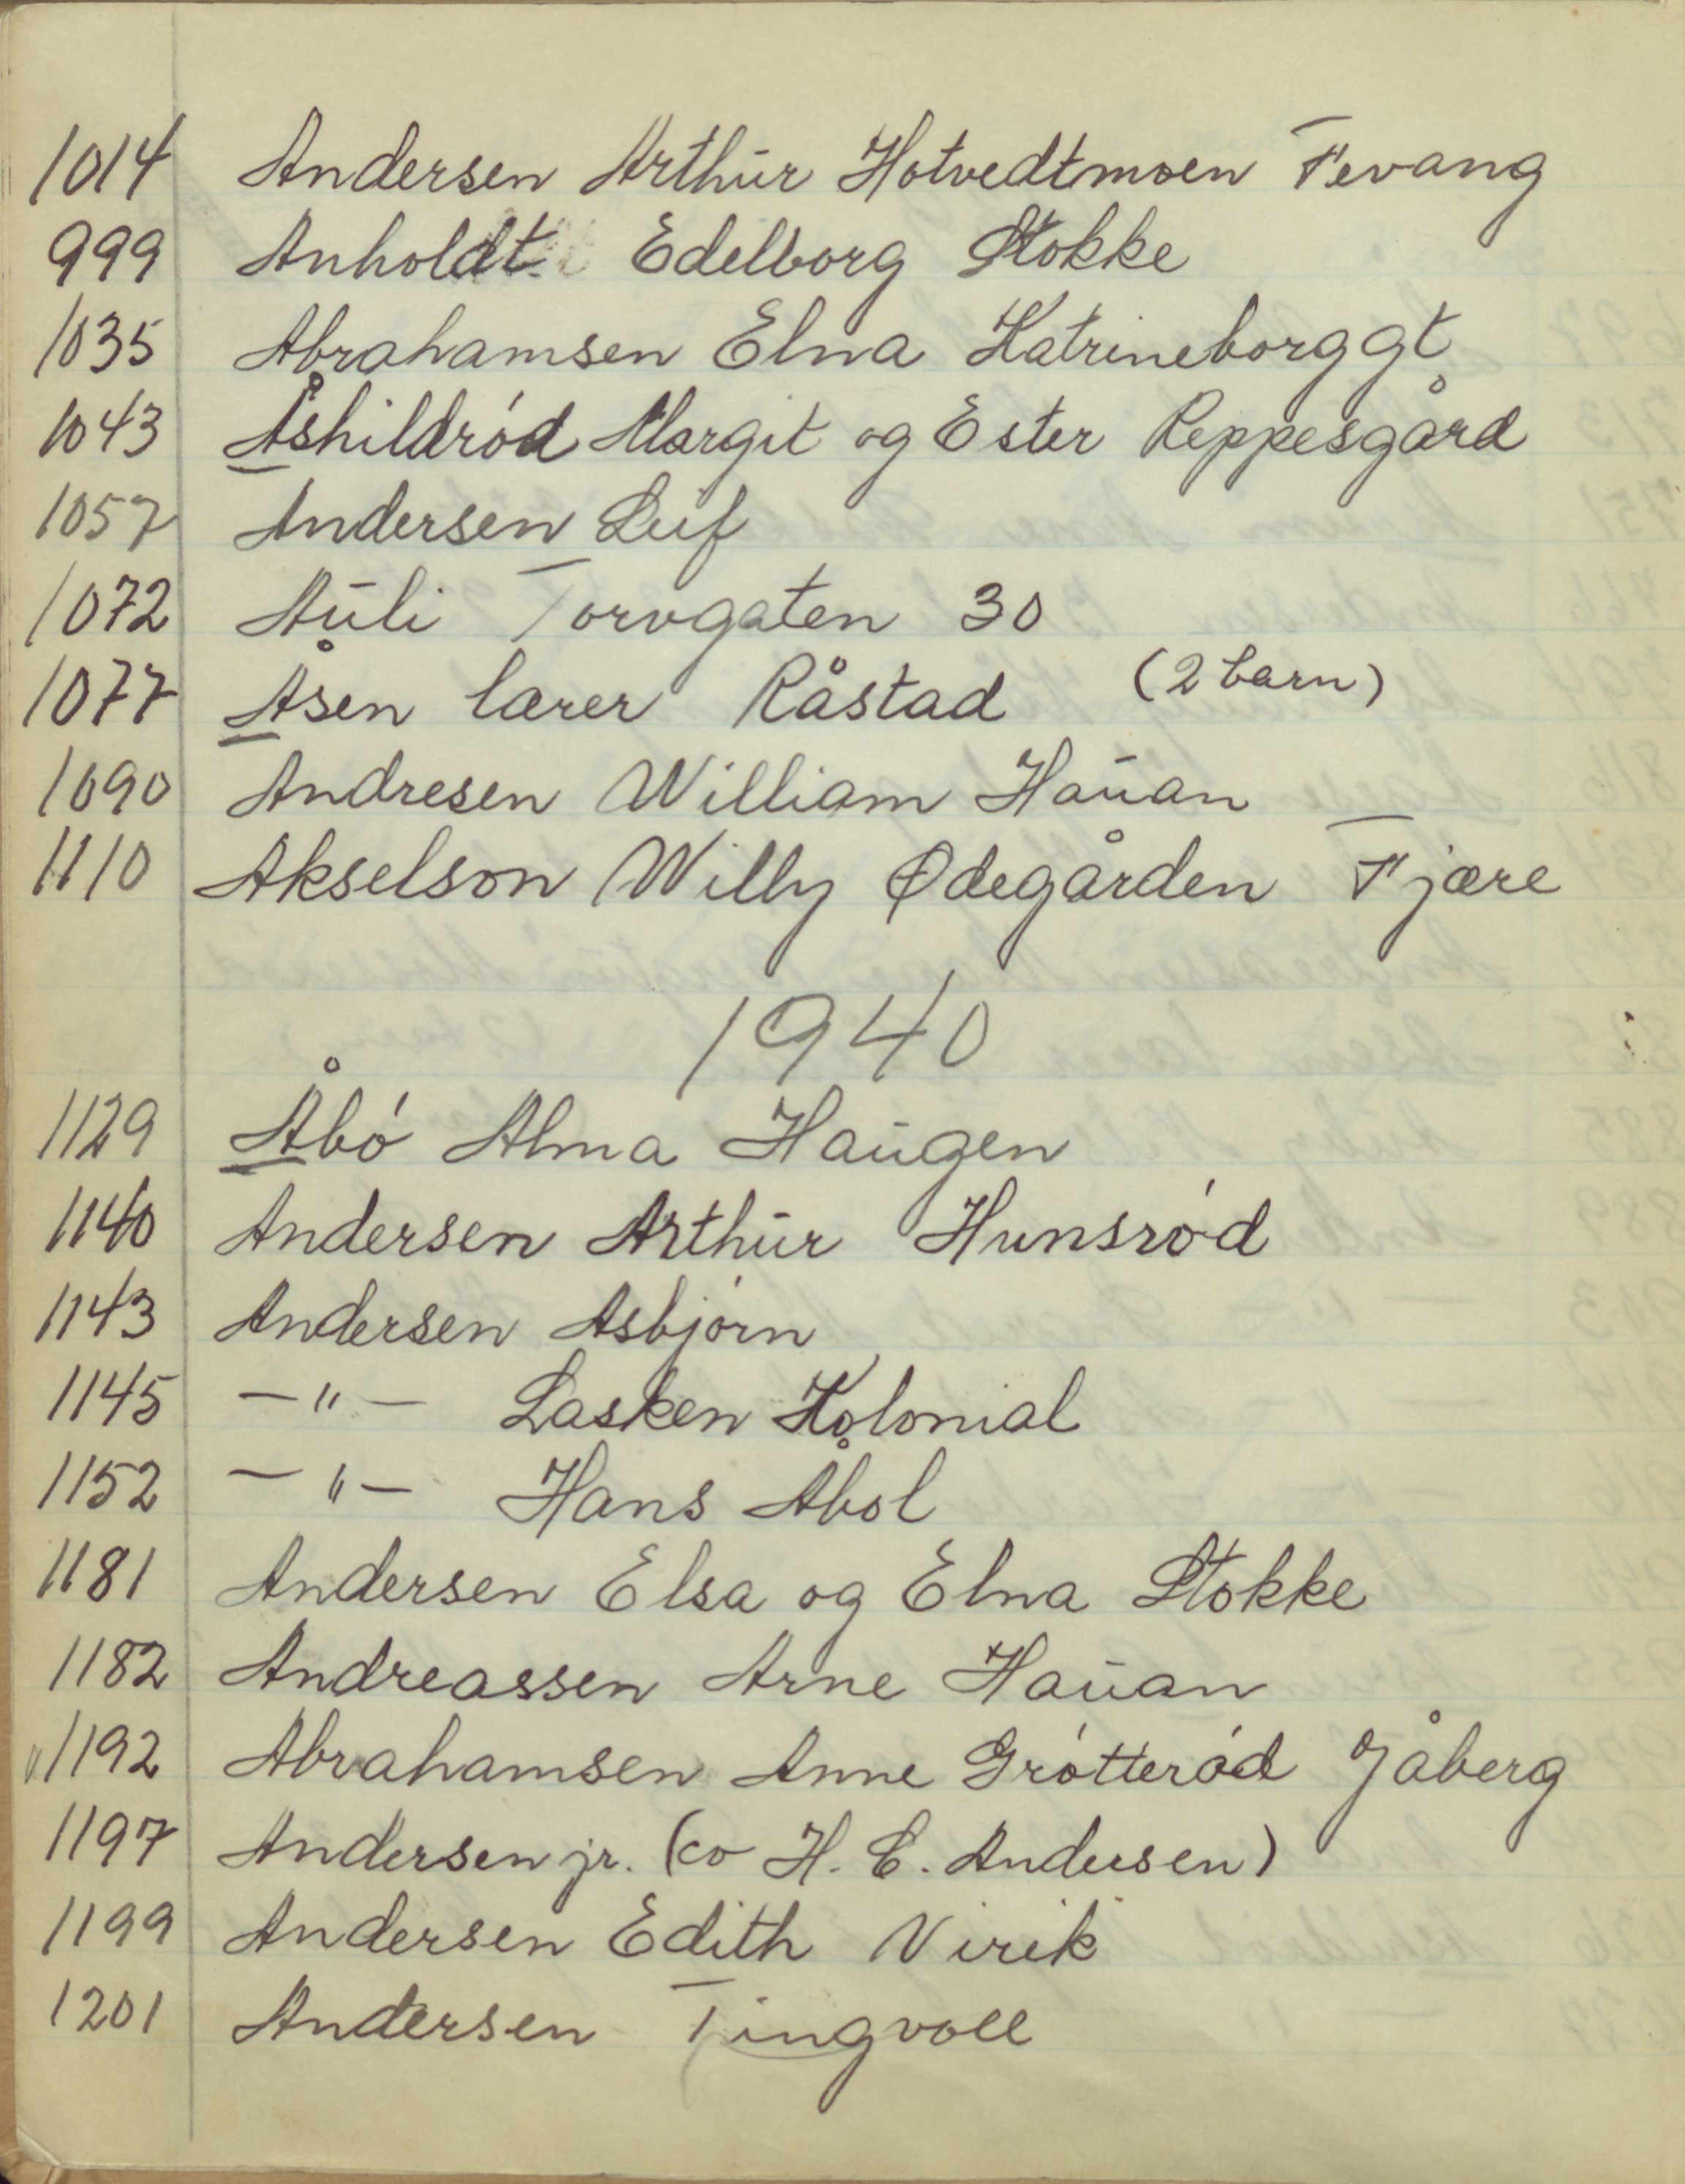 1014 Andersen Arthur Hotvedtmoen Fevang
999 Anholdt Edelborg Stokke
1035 Abrahamsen Elna Katrineborggt
1043 Åshildród Margit og Ester Reppesgård
1057 Andersen Leif
1072 Auli Torvgaten 30
1077 Åsen lærer Råstad (2 barn)
1090 Andresen William Hauan
1110 Akselson Willy Ødegården Fjære
1940
1129 Åbó Alma Haugen
1140 Andersen Arthur Hunsród
1143 Andersen Asbjórn
1145 — " — Lasken Kolonial
1152 — " — Hans Åbol
1181 Andersen Elsa og Elna Stokke
1182 Andreassen Arne Hauan
1192 Abrahamsen Anne Grótteród Jåberg
1197 Andersen jr. (co H. C. Andersen)
1199 Andersen Edith Virik
1201 Andersen Tingvoll